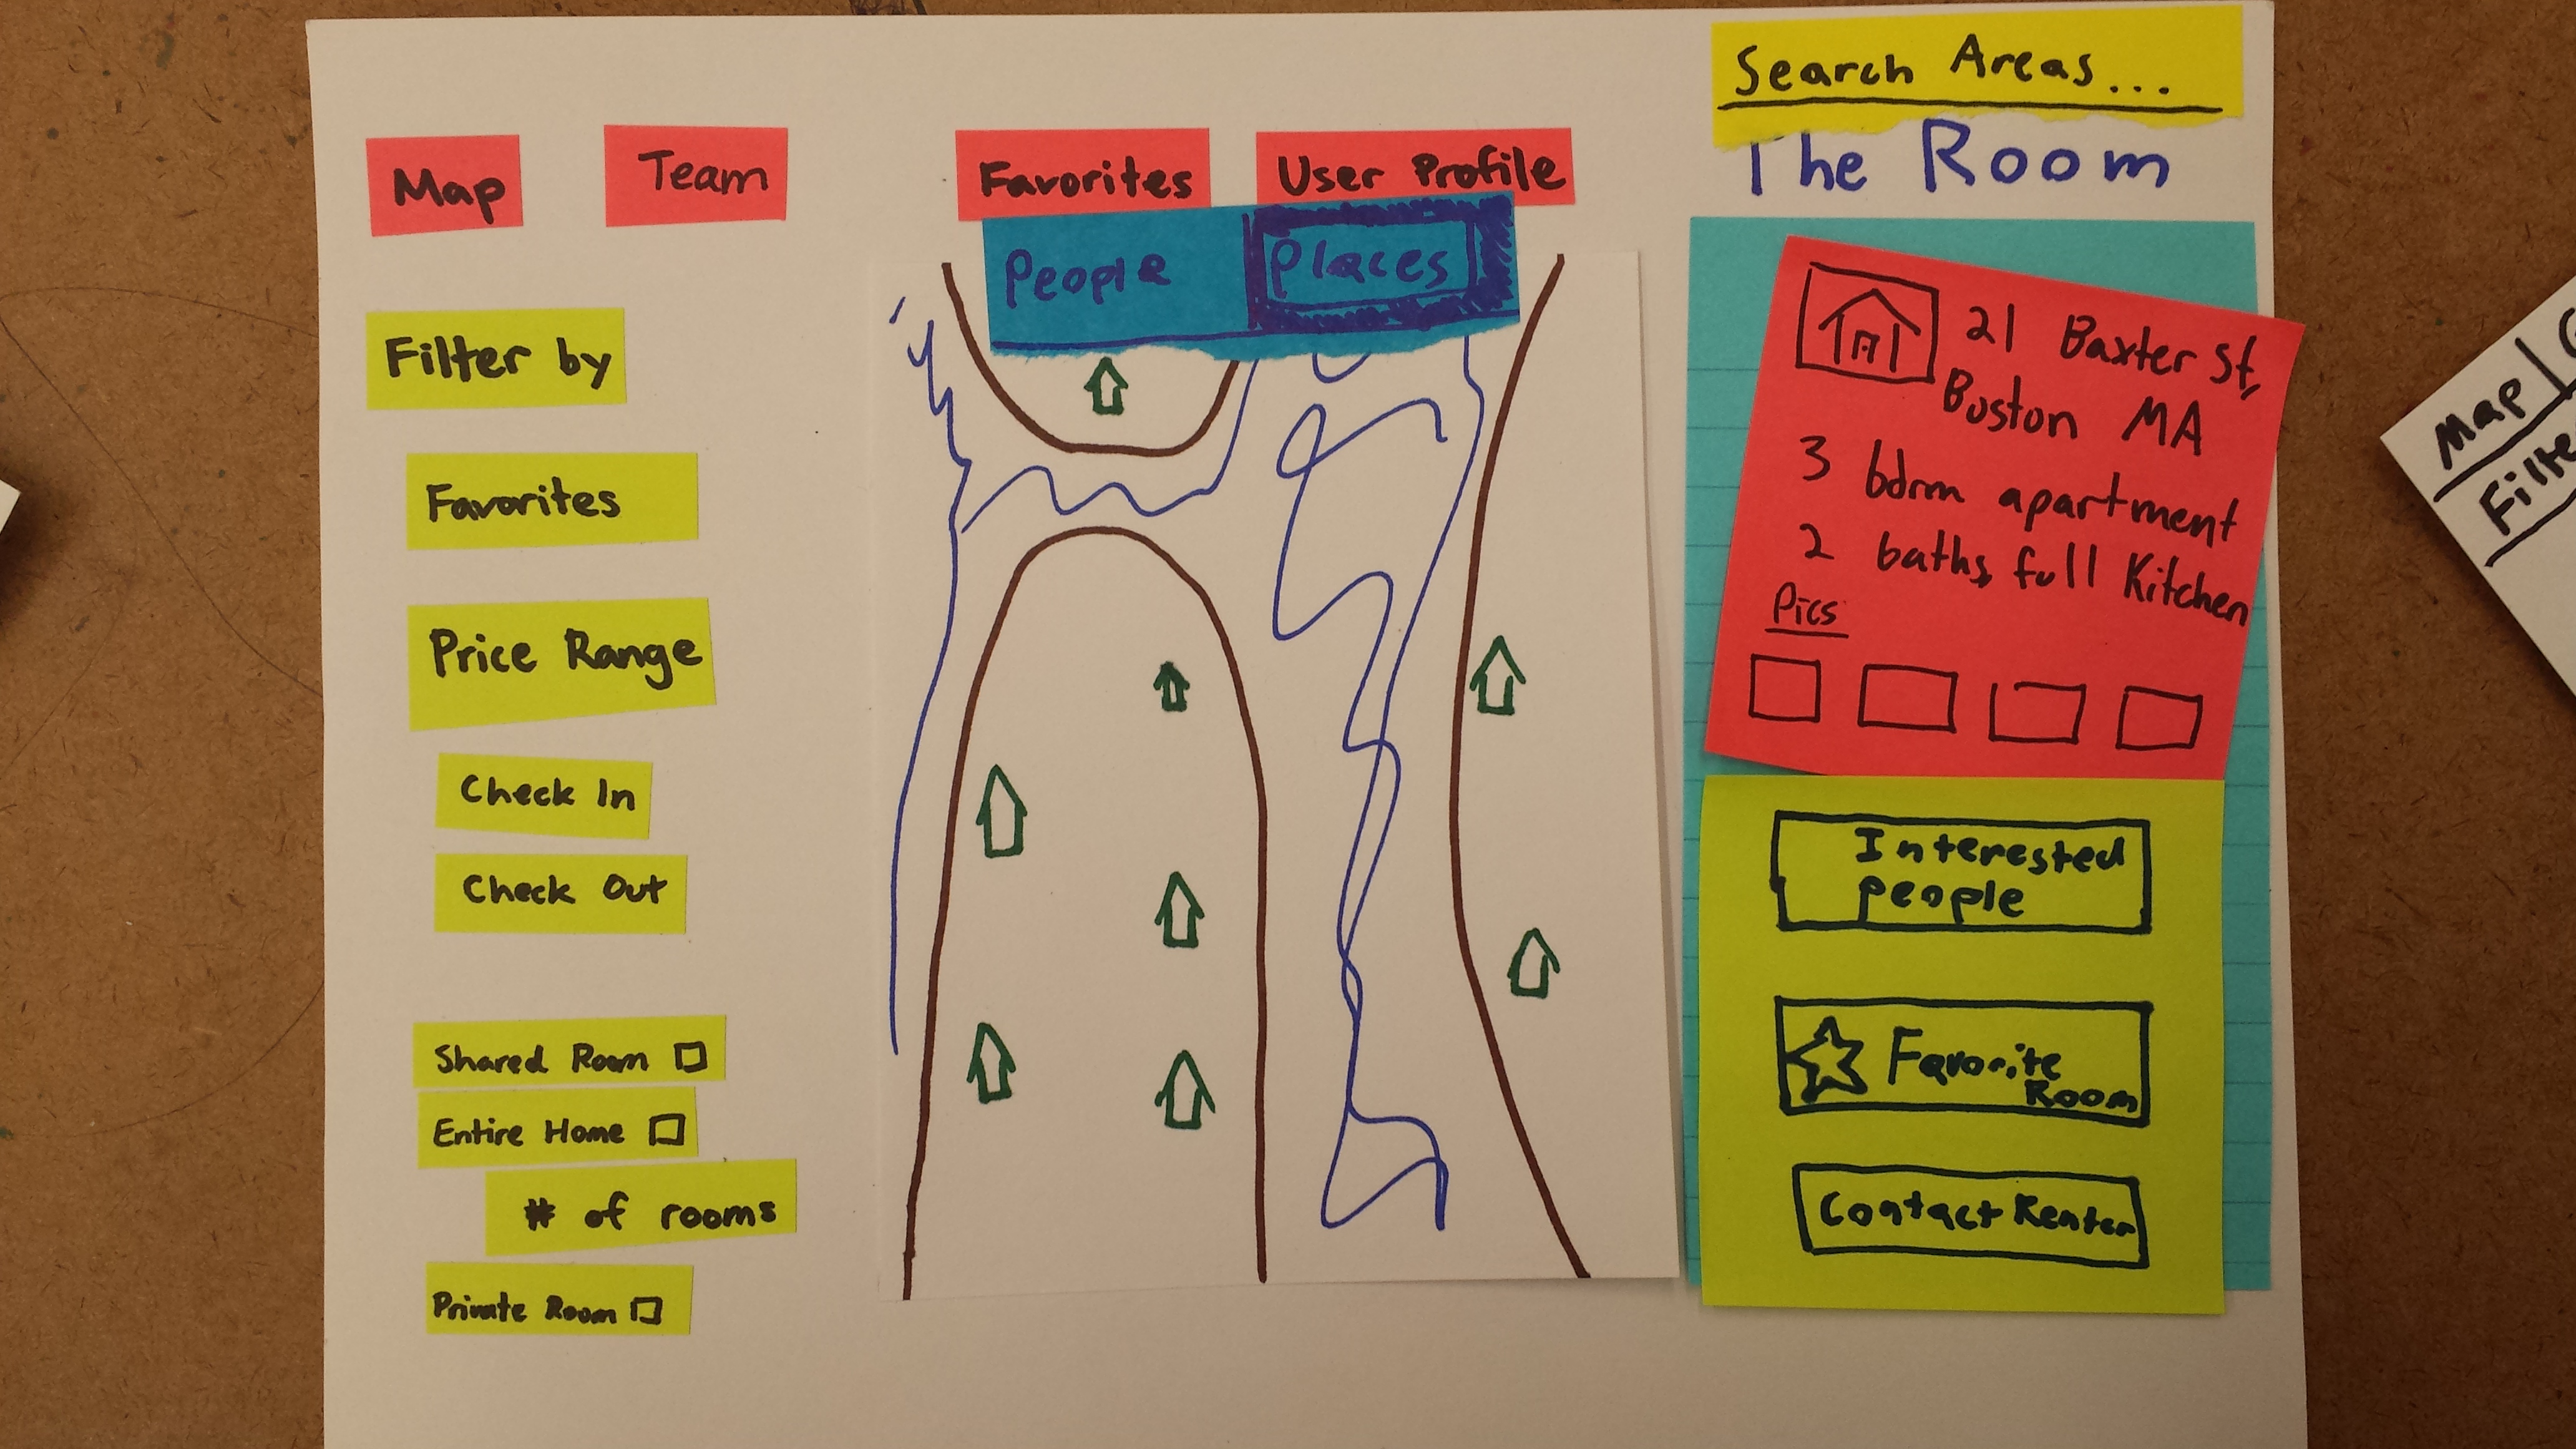 Search Areas...
The Room
Map
Team
Favorites
User Profile
People
Places
Filter by
Favorites
Price Range
Check In
Check Out
Shared Room
Entire Home
# of rooms
Private Room
21 Baxter St,
Boston MA
3 bdrm apartment
2 baths, full Kitchen
Pics
Interested
people
Favorite
Room
Contact Renter
Map